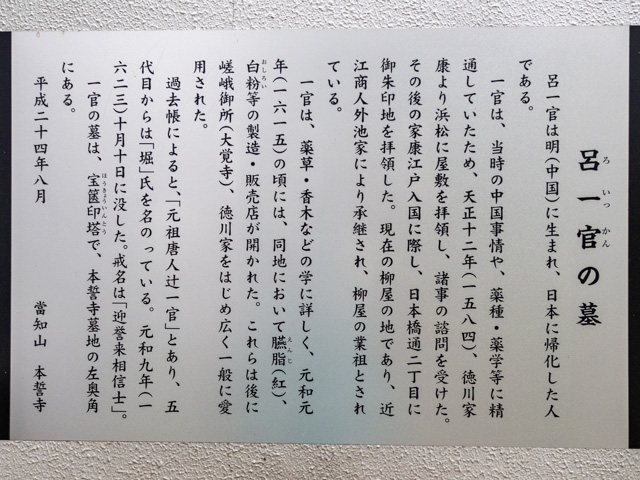 呂一官の墓
ろいっかん
呂一官は明(中国)に生まれ、日本に帰化した人
である。
一官は、当時の中国事情や、薬種・薬学等に精
通していたため、天正十二年(一五八四)、徳川家
康より浜松に屋敷を拝領し、諸事の諮問を受けた。
その後の家康江戸入国に際し、日本橋通二丁目に
御朱印地を拝領した。現在の柳屋の地であり、近
江商人外池家により承継され、柳屋の業祖とされ
ている。
一官は、薬草・香木などの学に詳しく、元和元
年(一六一五)の頃には、同地において臙脂(紅)、
えんじ
白粉等の製造・販売店が開かれた。これらは後に
おしろい
嵯峨御所(大覚寺)、徳川家をはじめ広く一般に愛
用された。
過去帳によると、「元祖唐人辻一官」とあり、五
代目からは「堀」氏を名のっている。元和九年(一
六二三)十月十日に没した。戒名は「迎誉来相信士」。
一官の墓は、宝篋印塔で、本誓寺墓地の左奥角
ほうきょういんとう
にある。
平成二十四年八月
當知山 本誓寺